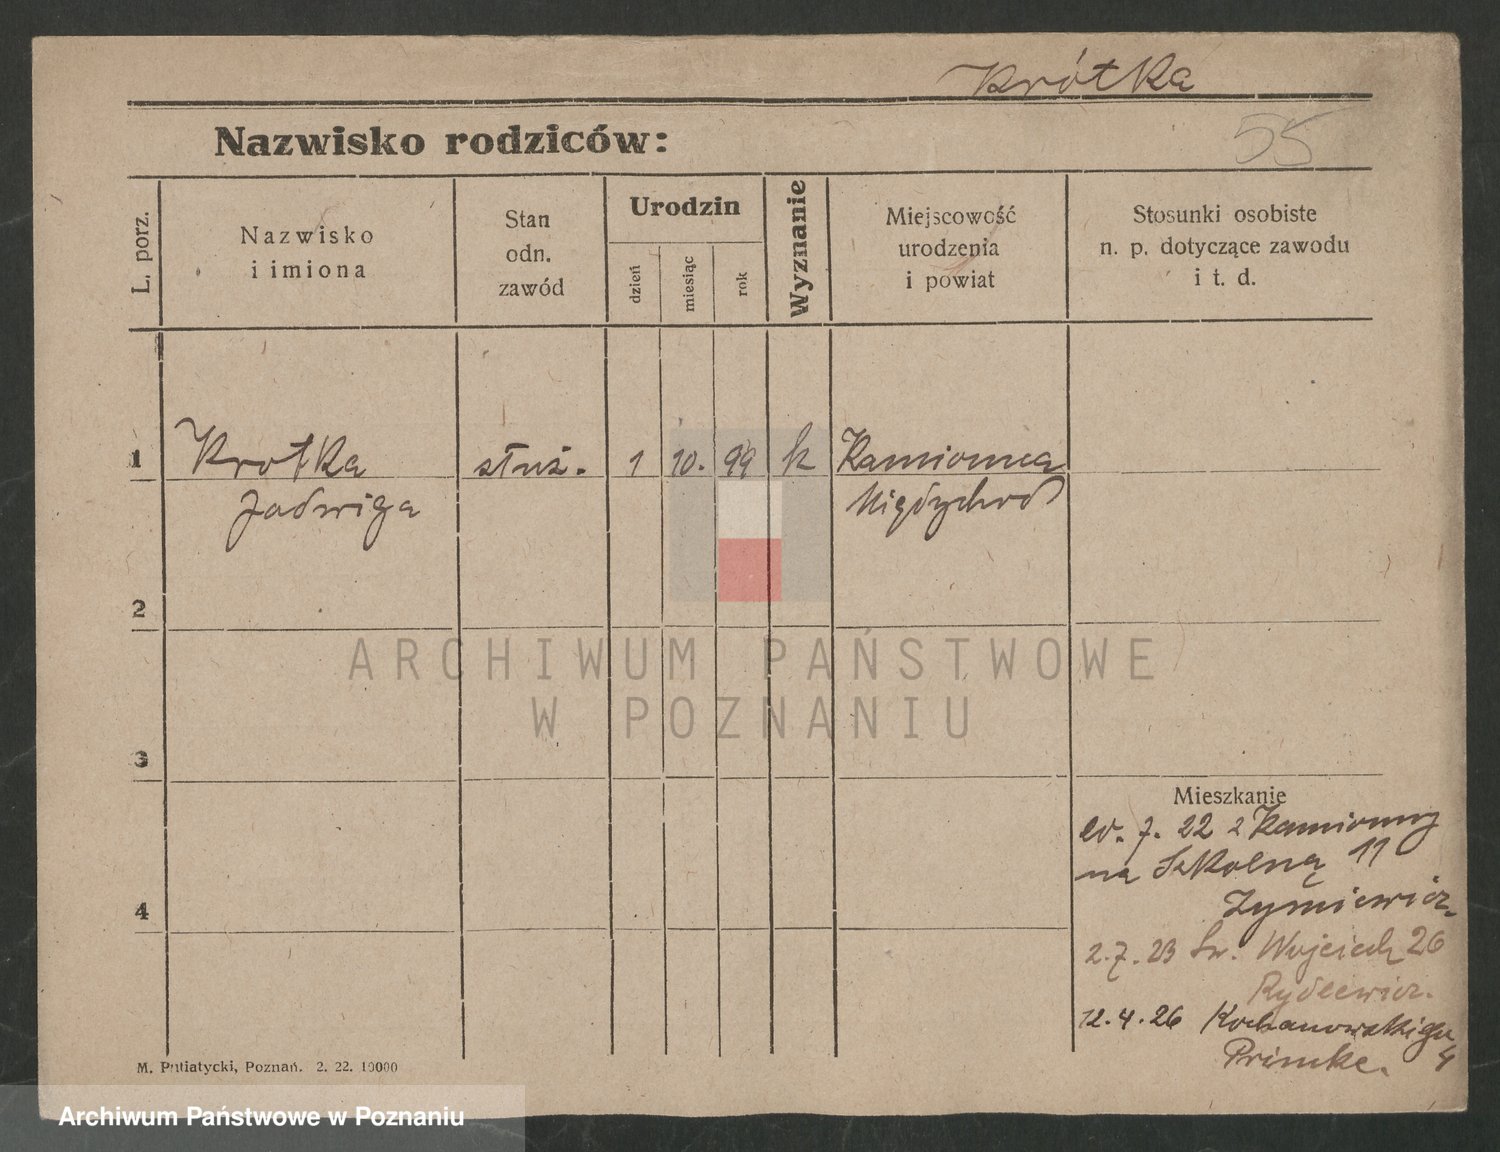 Krótka
Nazwisko rodziców:
55
L. porz.
Nazwisko
i imiona
Stan
odn.
zawód
Urodzin
dzień
miesiąc
rok
Wyznanie
Miejscowość
urodzenia
i powiat
Stosunki osobiste
n. p. dotyczące zawodu
i t. d.
1 Krotka służ. 1 10. 99 k Kamionna
Jadwiga Międzychód
2
3
4
Mieszkanie
7. 22 z Kamionny
na Szkolną 11
2.7.23 Św. Wojciech 26
Rydlewicz.
12.4.26 Kochanowskiego 4
Primke.
M. Putiatycki, Poznań. 2. 22. 10000
ARCHIWUM PAŃSTWOWE
W POZNANIU
Archiwum Państwowe w Poznaniu